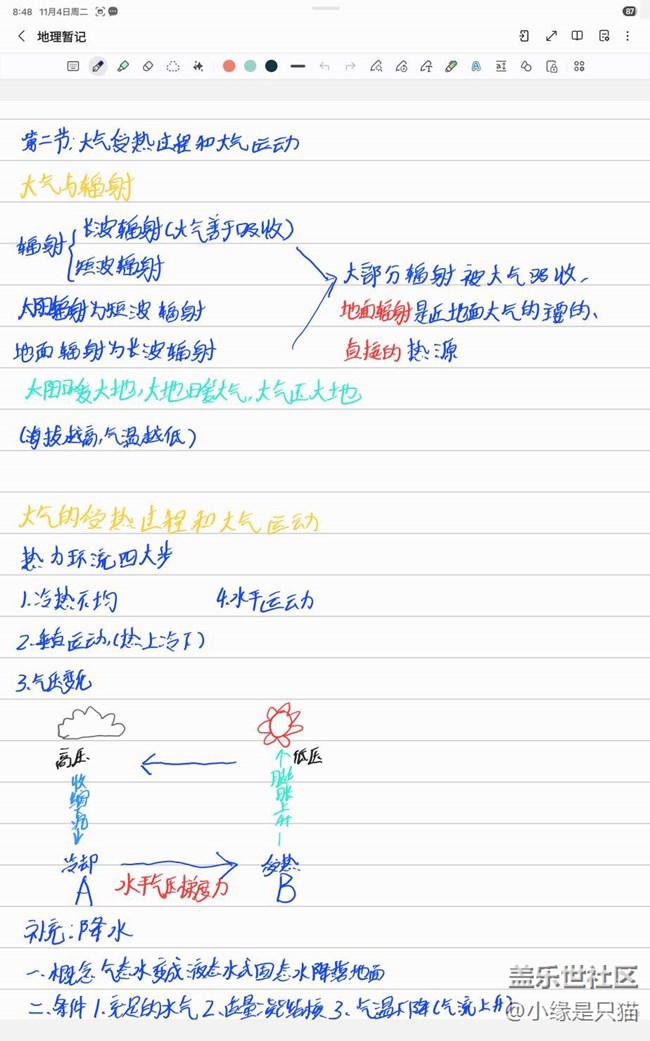 8:48 11月4日周二
87
地理暂记
第二节:大气受热过程和大气运动
大气与辐射
辐射{长波辐射(大气善于吸收)
短波辐射
大部分辐射被大气吸收、
太阳辐射为短波辐射
地面辐射是近地面大气的
地面辐射为长波辐射
直接的热源
太阳暖大地,大地暖大气,大气还大地
(海拔越高,气温越低)
大气的受热过程和大气运动
热力环流四大步
1.冷热不均
4.水平运动
2.垂直运动(热上冷下)
3.气压变化
高压
低压
收缩下沉
膨胀上升
冷却
受热
A
水平气压梯度力
B
补充:降水
一.概念 气态水变成液态水或固态水降落地面
二.条件 1.充足的水气 2.适量凝结核 3.气温下降(气流上升)
盖乐世社区
@小缘是只猫